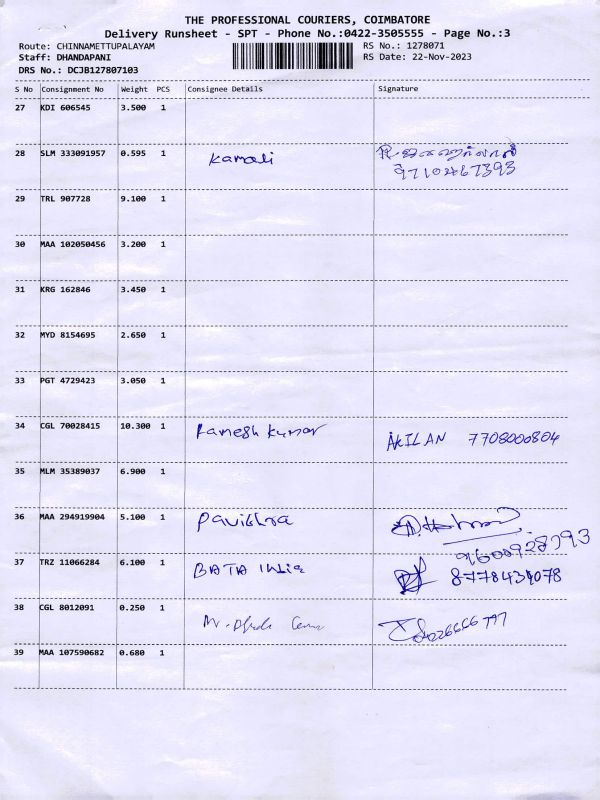 THE PROFESSIONAL COURIERS, COIMBATORE
Delivery Runsheet - SPT - Phone No.:0422-3505555 - Page No.:3
Route: CHINNAMETTUPALAYAM RS No.: 1278071
Staff: DHANDAPANI RS Date: 22-Nov-2023
DRS No.: DCJB127807103
S No Consignment No Weight PCS Consignee Details Signature
27 KDI 606545 3.500 1
28 SLM 333091957 0.595 1 Kamali
9710467393
29 TRL 907728 9.100 1
30 MAA 102050456 3.200 1
31 KRG 162846 3.450 1
32 MYD 8154695 2.650 1
33 PGT 4729423 3.050 1
34 CGL 70028415 10.300 1 Ramesh Kumar AKILAN 7708000804
35 MLM 35389037 6.900 1
36 MAA 294919904 5.100 1 Pavithra
9600928793
37 TRZ 11066284 6.100 1 BATA India 8778434078
38 CGL 8012091 0.250 1
39 MAA 107590682 0.680 1